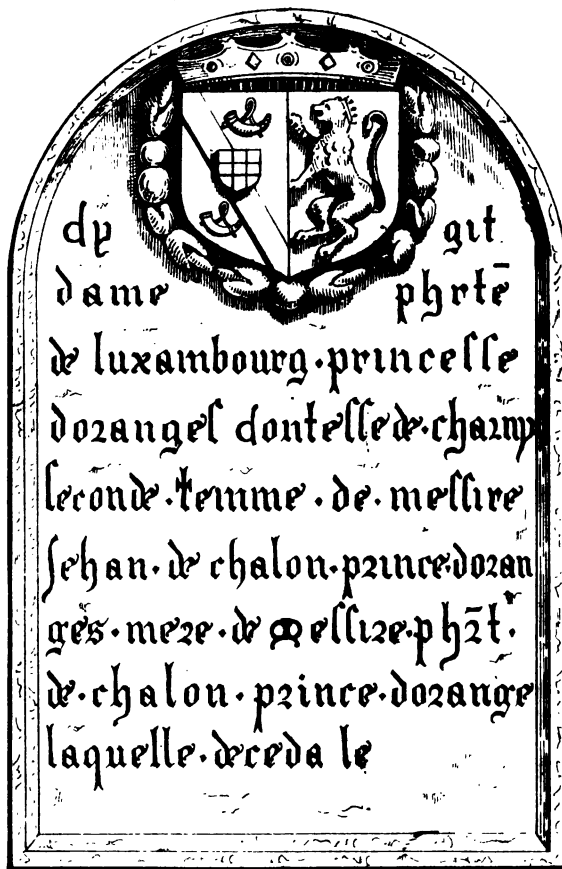 cy git
dame phrtē
de luxambourg·princesse
doranges contesse de·charny
seconde·femme·de·messire
Jehan·de chalon·prince·doran
ges·mere·de Messire·phr̄t·
de·chalon·prince·dorange
laquelle·deceda le